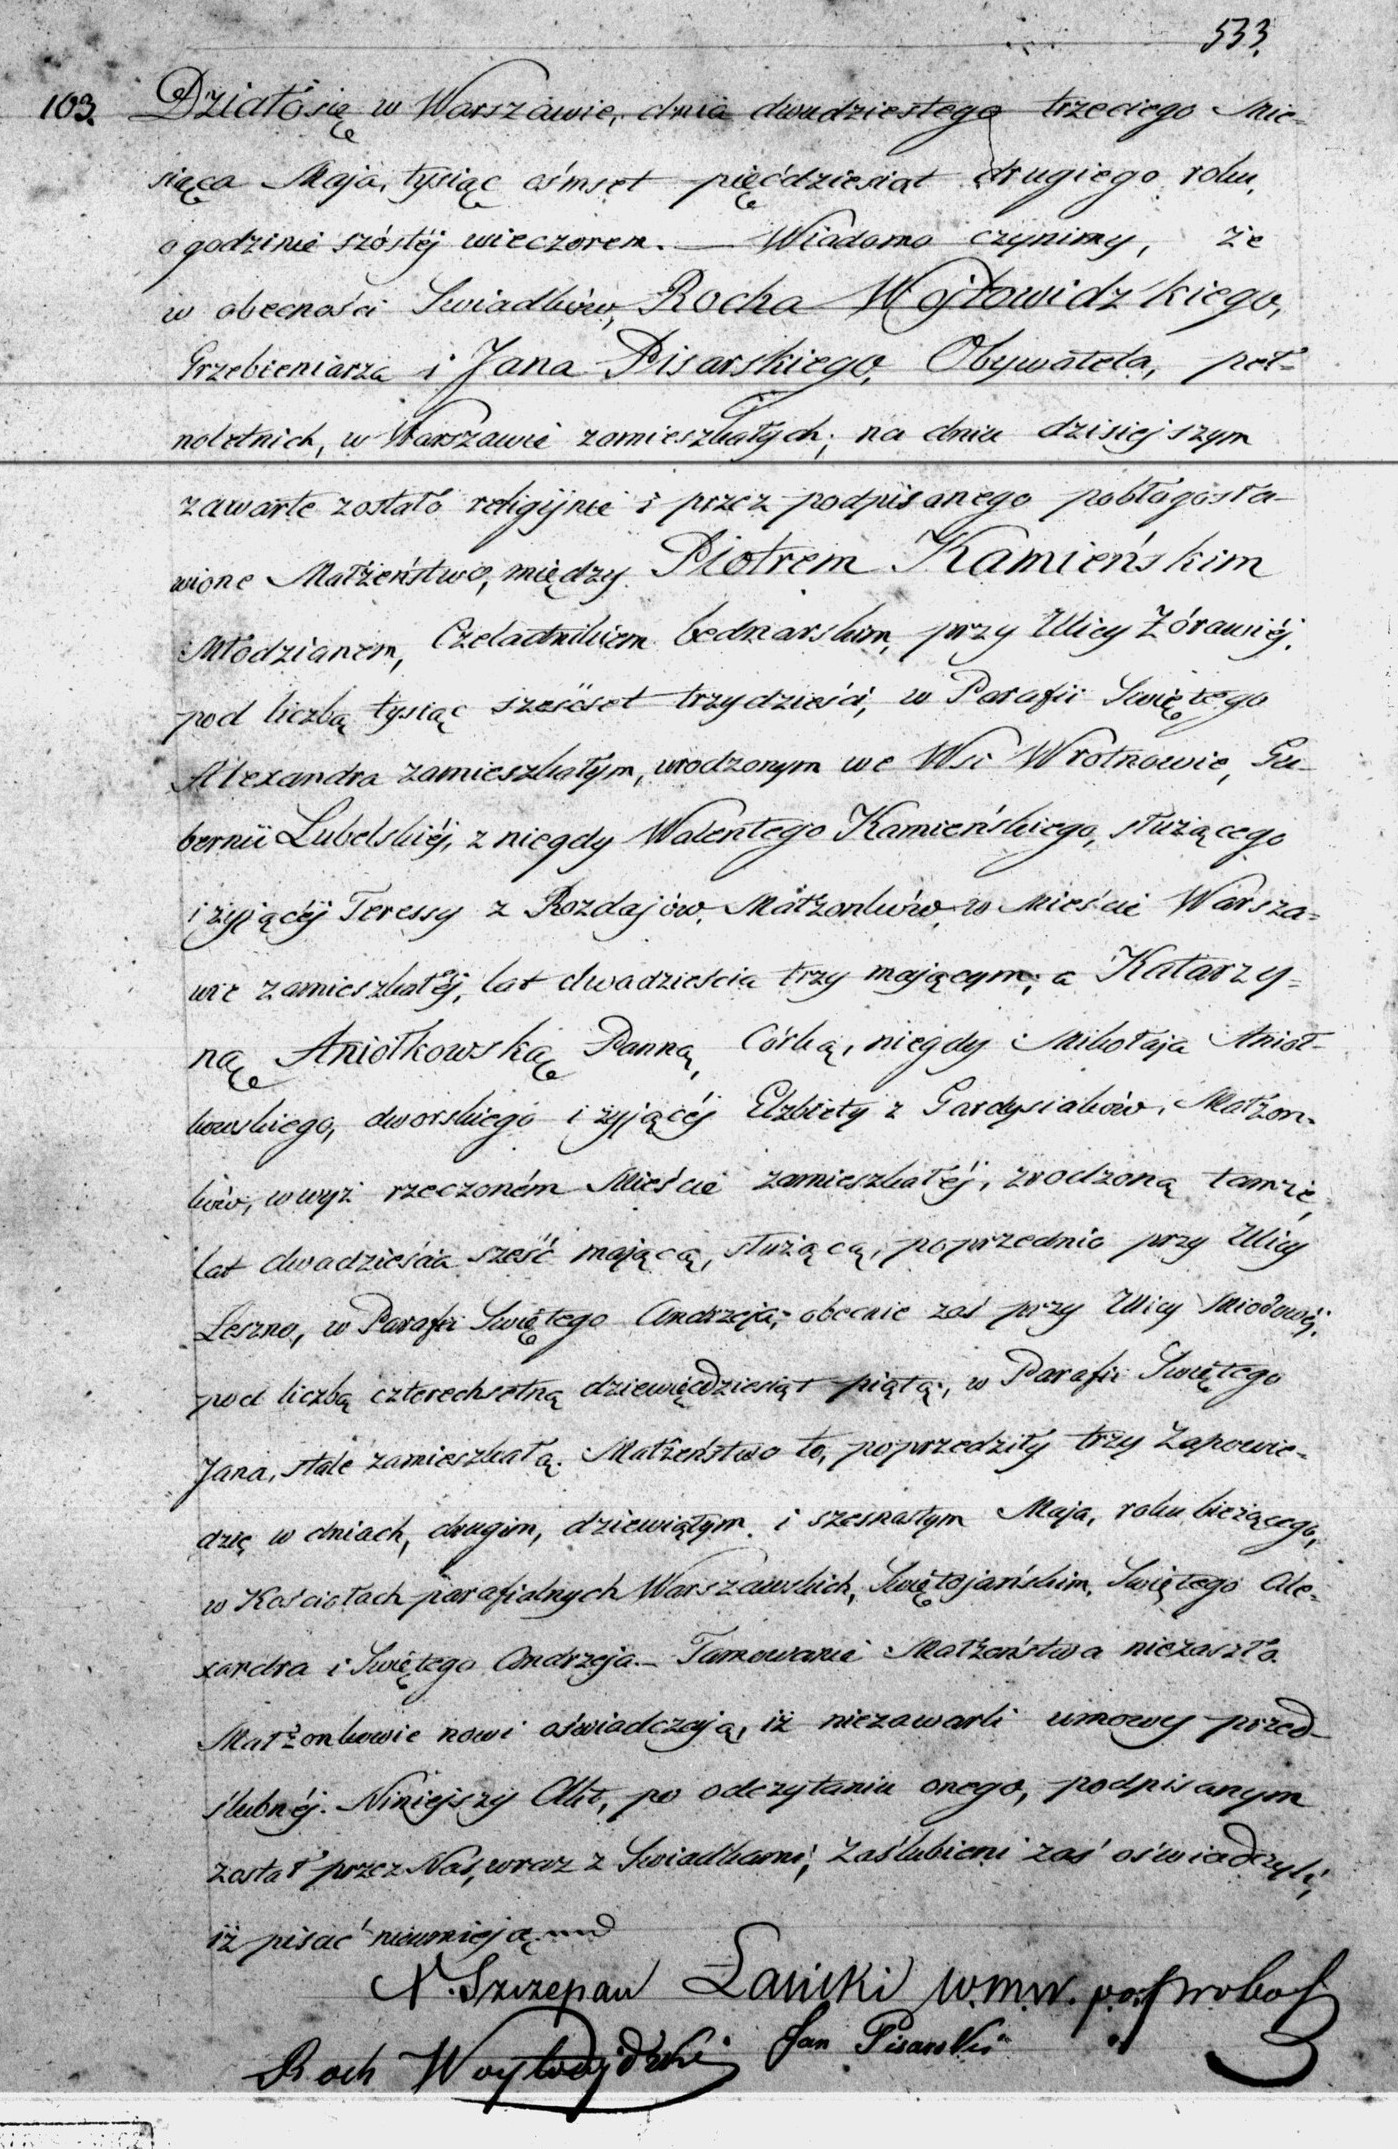 533.
103. Działo się w Warszawie, dnia dwudziestego trzeciego Mie=
siąca Maja, tysiąc ośmset pięćdziesiąt drugiego roku,
o godzinie szóstéj wieczorem. — Wiadomo czynimy, że
w obecności Swiadków, Rocha Wojtowidzkiego,
Grzebieniarza i Jana Pisarskiego, Obywatela, peł=
noletnich, w Warszawie zamieszkałych; na dniu dzisiejszym
zawarte zostało religijnie i przez podpisanego pobłogosła-
wione Małżeństwo, między Piotrem Kamieńskim
Młodzianem, Czeladnikiem bednarskim, przy Ulicy Żórawiéj,
pod liczbą tysiąc sześćset trzydzieści, w Parafii Swiętego
Alexandra zamieszkałym, urodzonym we Wsi Wrotnowie, Gu-
bernii Lubelskiéj, z niegdy Walentego Kamieńskiego, służącego
i żyjącéj Teressy z Rozdajów, Małżonków, w Mieście Warsza=
wie zamieszkałéj, lat dwadzieścia trzy mającym; a Katarzy=
ną Aniołkowską Panną, Córką, niegdy Mikołaja Anioł-
kowskiego, dworskiego i żyjącéj Elżbiety z Gardysiaków, Małżon=
ków, w wyż rzeczoném Mieście zamieszkałéj, zrodzoną tamże,
lat dwadzieścia sześć mającą, służącą, poprzednio przy Ulicy
Leszno, w Parafii Swiętego Andrzeja; obecnie zaś przy Ulicy Miodowéj,
pod liczbą czterechsetną dziewięćdziesiąt piątą, w Parafii Swiętego
Jana, stale zamieszkałą. Małżeństwo to, poprzedziły trzy Zapowie=
dzie w dniach, drugim, dziewiątym i szesnastym Maja, roku bieżącego,
w Kościołach parafialnych Warszawskich, Swiętojańskim, Swiętego Ale=
xandra i Swiętego Andrzeja. — Tamowanie Małżeństwa niezaszło.
Małżonkowie nowi oświadczają, iż niezawarli umowy przed-
ślubnéj. Niniejszy Akt, po odczytaniu onego, podpisanym
został przez Nas, wraz z Swiadkami; Zaślubieni zaś oświadczyli,
iż pisać nieumieją
X. Szczepan Łasicki w.m.w.
Roch Woytowidzki Jan Pisarski